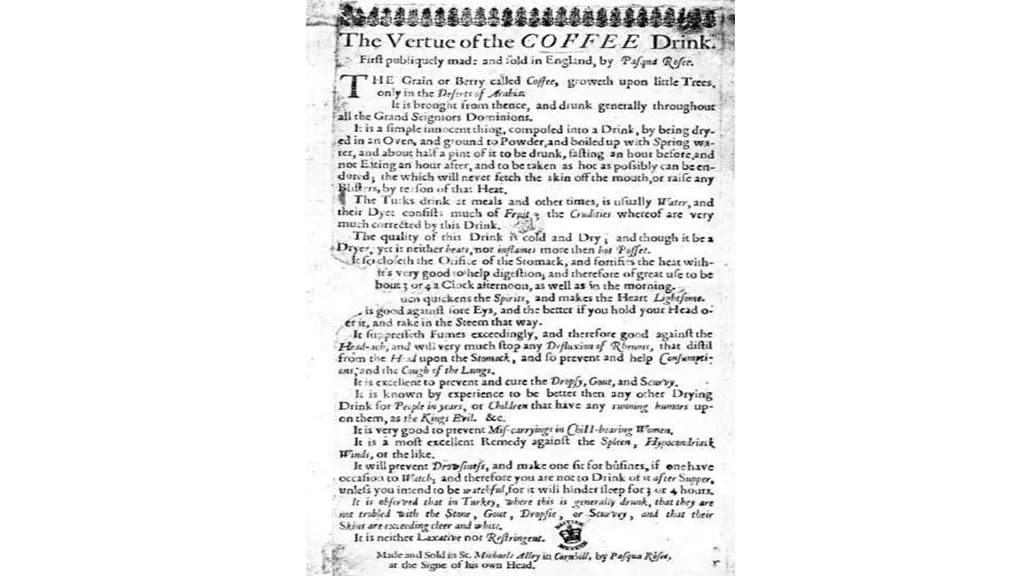 The Vertue of the COFFEE Drink.
First publiquely made and sold in England, by Pasqua Rosee.
THE Grain or Berry called Coffee, groweth upon little Trees,
only in the Deserts of Arabia.
It is brought from thence, and drunk generally throughout
all the Grand Seigniors Dominions.
It is a simple innocent thing, composed into a Drink, by being dry-
ed in an Oven, and ground to Powder, and boiled up with Spring wa-
ter, and about half a pint of it to be drunk, fasting an hour before, and
not Eating an hour after, and to be taken as hot as possibly can be en-
dured; the which will never fetch the skin off the mouth, or raise any
Blisters, by reason of that Heat.
The Turks drink at meals and other times, is usually Water, and
their Dyet consists much of Fruit; the Crudities whereof are very
much corrected by this Drink.
The quality of this Drink is cold and Dry; and though it be a
Dryer, yet it neither heats, nor inflames more then hot Posset.
It so closeth the Orifice of the Stomack, and fortifies the heat with-
it's very good to help digestion; and therefore of great use to be
bout 3 or 4 a Clock afternoon, as well as in the morning.
quickens the Spirits, and makes the Heart Lightsome.
is good against sore Eys, and the better if you hold your Head o-
er it, and take in the Steem that way.
It suppresseth Fumes exceedingly, and therefore good against the
Head-ach, and will very much stop any Defluxion of Rheums, that distil
from the Head upon the Stomack, and so prevent and help Consumpti-
ons; and the Cough of the Lungs.
It is excellent to prevent and cure the Dropsy, Gout, and Scurvy.
It is known by experience to be better then any other Drying
Drink for People in years, or Children that have any running humors up-
on them, as the Kings Evil. &c.
It is very good to prevent Mis-carryings in Child-bearing Women.
It is a most excellent Remedy against the Spleen, Hypocondriack
Winds, or the like.
It will prevent Drowsiness, and make one fit for busines, if one have
occasion to Watch; and therefore you are not to Drink of it after Supper,
unless you intend to be watchful, for it will hinder sleep for 3 or 4 hours.
It is observed that in Turkey, where this is generally drunk, that they are
not trobled with the Stone, Gout, Dropsie, or Scurvey, and that their
Skins are exceeding cleer and white.
It is neither Laxative nor Restringent.
BRITISH MUSEUM
Made and Sold in St. Michaels Alley in Cornhill, by Pasqua Rosee,
at the Signe of his own Head.